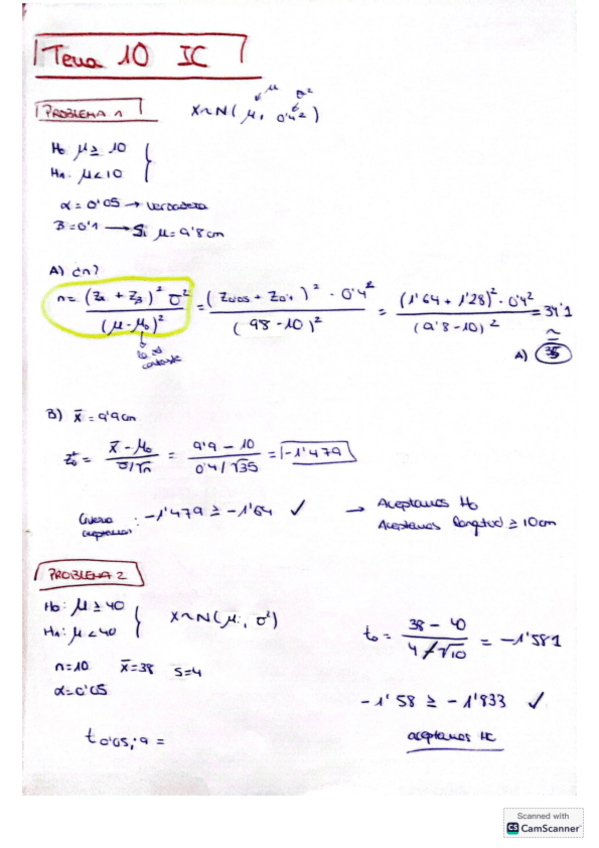 Tema 10 IC
PROBLEMA 1
X~N(μ, 0'4²)
μ σ²
H₀ μ ≥ 10
H₁: μ < 10
α = 0'05 → verdadera
B = 0'1 → Si μ = 9'8 cm
A) ¿n?
n = (Zα + Zβ)² σ² / (μ - μ₀)² = (Z0'05 + Z0'1)² · 0'4² / (98 - 10)² = (1'64 + 1'28)² · 0'4² / (9'8 - 10)² = 34'1
≃
A) 35
B) x̄ = 9'9 cm
Z₀ = x̄ - μ₀ / σ/√n = 9'9 - 10 / 0'4/√35 = -1'479
: -1'479 ≥ -1'64 ✓ → Aceptamos H₀
Aceptamos longitud ≥ 10cm
PROBLEMA 2
H₀: μ ≥ 40
H₁: μ < 40
X~N(μ, σ²)
n = 10 x̄ = 38 s = 4
α = 0'05
t 0'05; 9 =
t₀ = 38 - 40 / 4/√10 = -1'581
-1'58 ≥ -1'833 ✓
aceptamos H₀
Scanned with
CS CamScanner